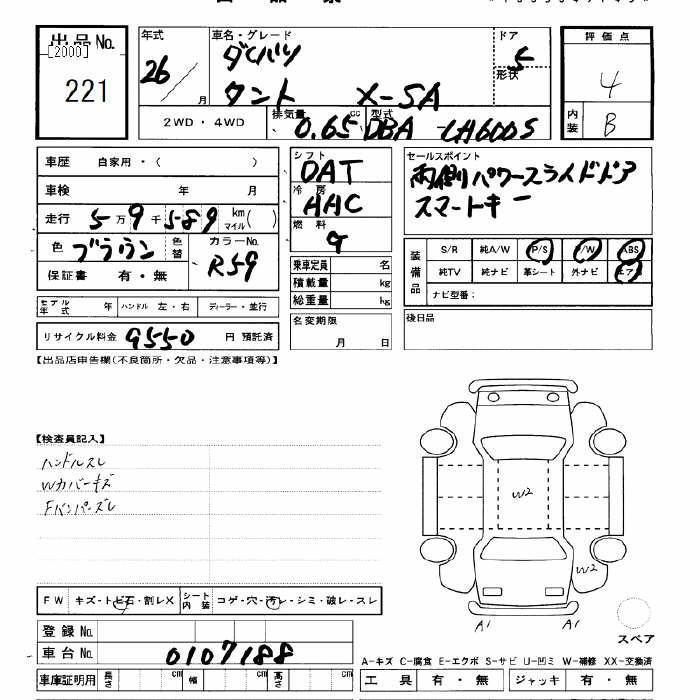 出品No.
[2000]
221
年式
26/
月
車名・グレード
ダイハツ
タント X-SA
ドア
5
形状
評価点
4
内装
B
2WD・4WD
排気量
0.65
cc
型式
DBA LA600S
車歴 自家用・( )
車検 年 月
走行 5万9千589 km マイル( )
色 ブラウン 色替 カラーNo. R59
保証書 有・無
モデル年式 年 ハンドル 左・右 ディーラー・並行
リサイクル料金 9550 円 預託済
シフト
DAT
冷房
AAC
燃料
G
乗車定員 名
積載量 kg
総重量 kg
名変期限
月 日
セールスポイント
両側パワースライドドア
スマートキー
装備品
S/R 純A/W P/S P/W ABS
純TV 純ナビ 革シート 外ナビ エアB
ナビ型番:
後日品
【出品店申告欄(不良箇所・欠品・注意事項等)】
【検査員記入】
ハンドルスレ
Wカバーキズ
Fバンパーズレ
W2
W2
A1 A1
スペア
FW キズ・トビ石・割レX シート内装 コゲ・穴・汚レ・シミ・破レ・スレ
登録No.
車台No. 0107188
車庫証明用 長さ cm 幅 cm 高さ cm
A-キズ C-腐食 E-エクボ S-サビ U-凹ミ W-補修 XX-交換済
工具 有・無 ジャッキ 有・無